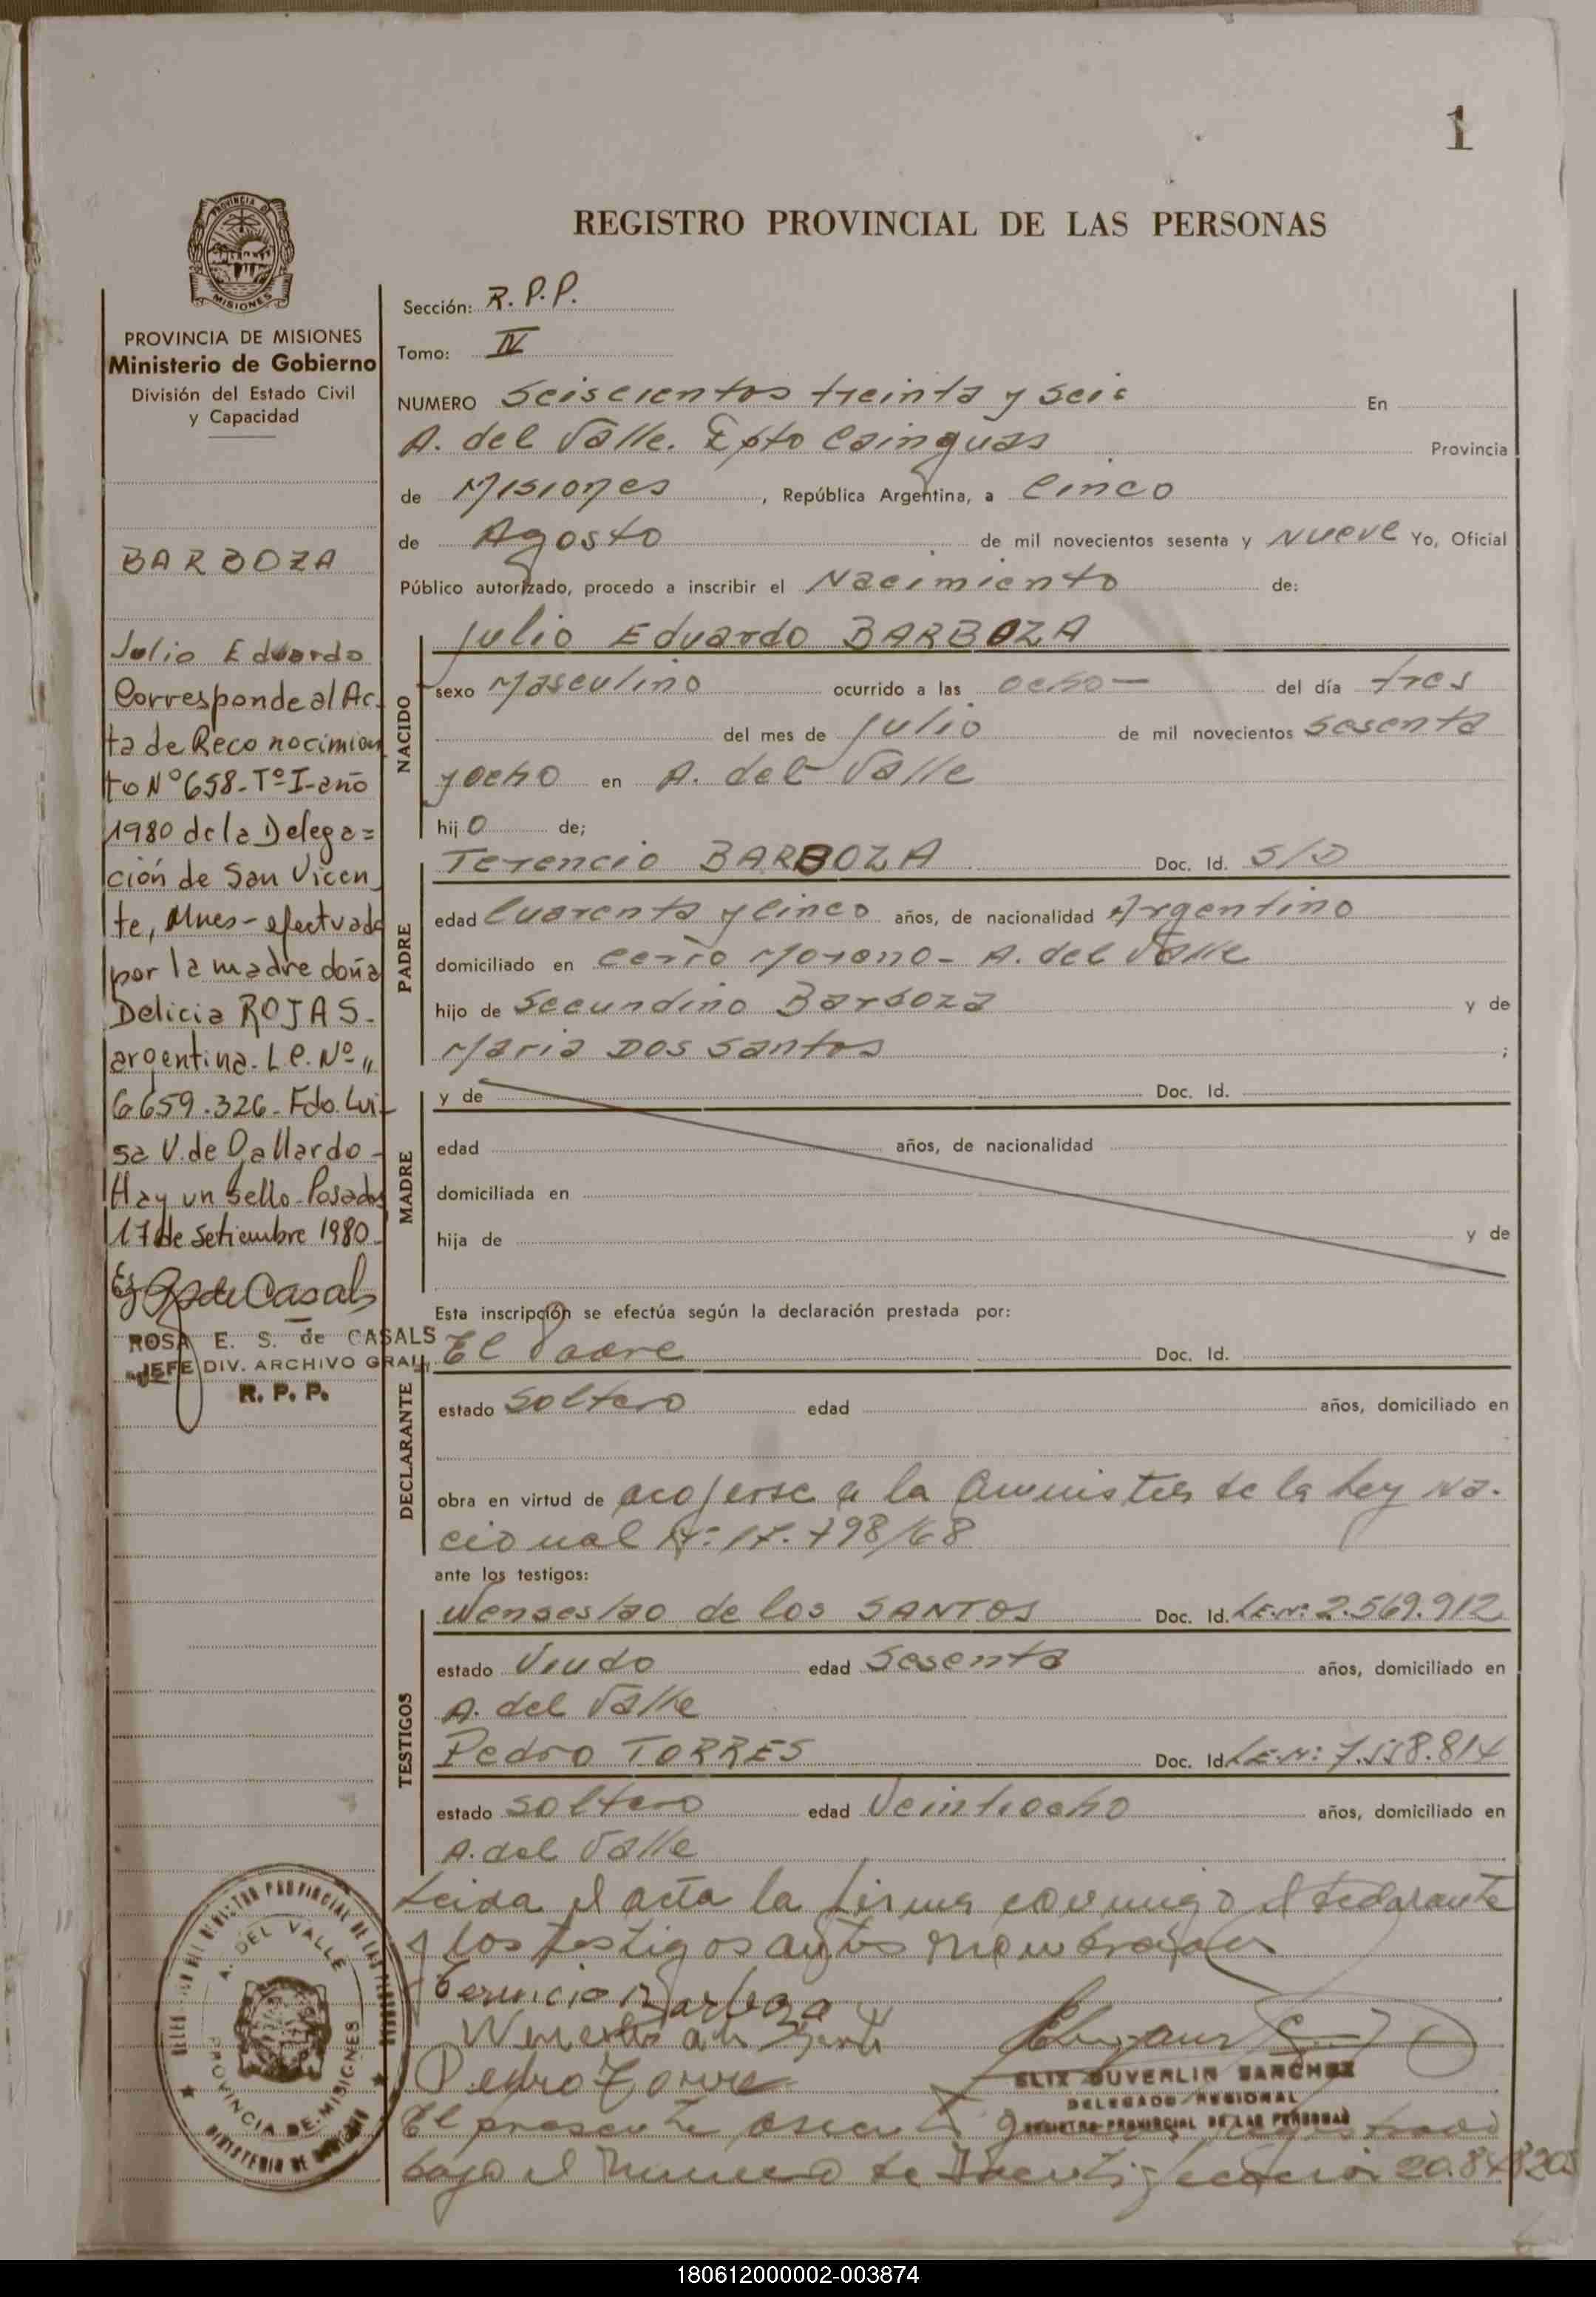 1
PROVINCIA DE
MISIONES
PROVINCIA DE MISIONES
Ministerio de Gobierno
División del Estado Civil
y Capacidad
BARBOZA
Julio Eduardo
Corresponde al Ac-
ta de Reconocimien
to Nº 658-Tº I-año
1980 de la Delega=
ción de San Vicen
te, Mnes- efectuado
por la madre doña
Delicia ROJAS-
argentina. L.C. Nº "
6.659.326- Fdo. Lui-
sa V. de Gallardo-
Hay un sello-Posadas
17 de Setiembre 1980-
de Casals
ROSA E. S. de CASALS
JEFE DIV. ARCHIVO GRAL.
R. P. P.
REGISTRO PROVINCIAL DE LAS PERSONAS
Sección: R. P. P.
Tomo: IV
NUMERO Seiscientos treinta y seis En
A. del Valle. Dpto Cainguas Provincia
de Misiones, República Argentina, a Cinco
de Agosto de mil novecientos sesenta y Nueve Yo, Oficial
Público autorizado, procedo a inscribir el Nacimiento de:
NACIDO
Julio Eduardo BARBOZA
sexo Masculino ocurrido a las ocho— del día tres
del mes de julio de mil novecientos sesenta
y ocho en A. del Valle
hijo de;
PADRE
Terencio BARBOZA Doc. Id. S/D
edad Cuarenta y cinco años, de nacionalidad Argentino
domiciliado en Cerro Moreno- A. del Valle
hijo de Secundino Barboza y de
Maria Dos Santos ;
MADRE
y de Doc. Id.
edad años, de nacionalidad
domiciliada en
hija de y de
DECLARANTE
Esta inscripción se efectúa según la declaración prestada por:
El Padre Doc. Id.
estado soltero edad años, domiciliado en
obra en virtud de acojerse a la Amnistia de la Ley Na-
cional Nº 17.798/68
ante los testigos:
TESTIGOS
Wenseslao de los SANTOS Doc. Id. L.E.Nº 2.569.912
estado Viudo edad Sesenta años, domiciliado en
A. del Valle
Pedro TORRES Doc. Id. L.E.Nº: 7.558.814
estado soltero edad Veintiocho años, domiciliado en
A. del Valle
Leida el acta la firma conmigo el declarante
y los testigos antes nombrados
Terencio Barboza
Pedro Torre
ELIX DUVERLIN SANCHEZ
DELEGADO REGIONAL
REGISTRO PROVINCIAL DE LAS PERSONAS
El presente
bajo el Numero de Identificacion
A. DEL VALLE
PROVINCIA DE MISIONES
MINISTERIO DE GOBIERNO
180612000002-003874